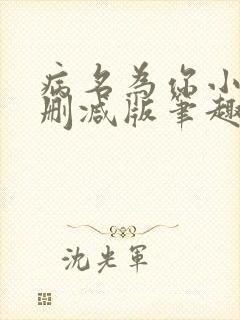 病名为你小
删减版笔趣
沈光军